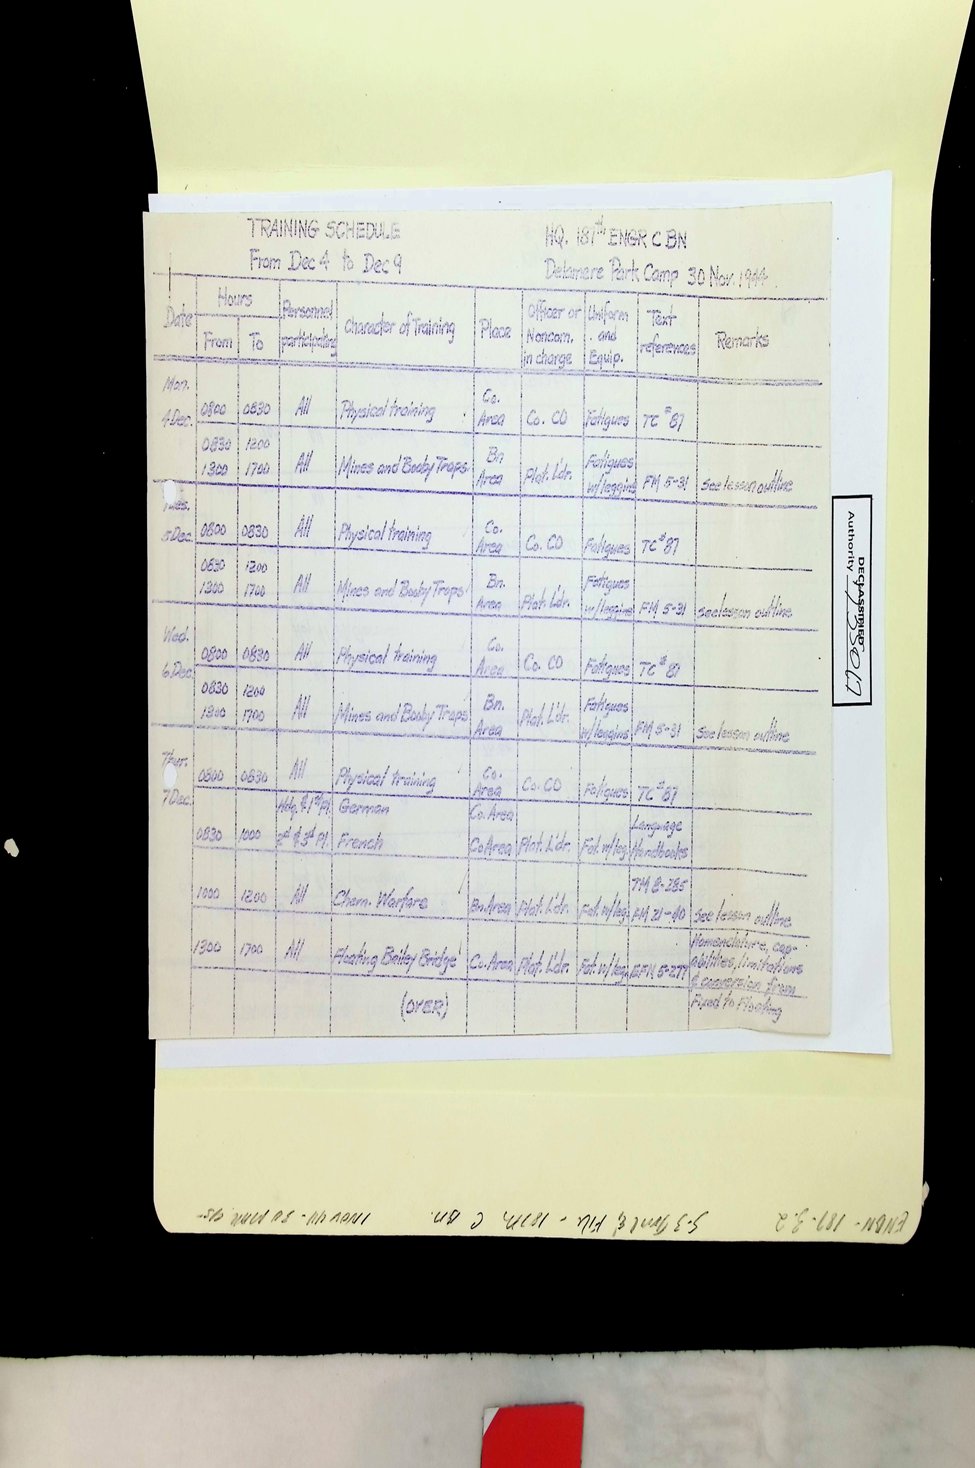 TRAINING SCHEDULE
From Dec 4 to Dec 9
HQ. 187th ENGR C BN
Delamere Park Camp 30 Nov. 1944.
Date Hours From To Personnel participating Character of Training Place Officer or Noncom. in charge Uniform and Equip. Text references Remarks
Mon. 4 Dec. 0800 0830 All Physical training Co. Area Co. CO Fatigues TC #87
0830 1200
1300 1700 All Mines and Booby Traps Bn Area Plat. Ldr. Fatigues w/leggins FM 5-31 See lesson outline
Tues. 5 Dec. 0800 0830 All Physical training Co. Area Co. CO Fatigues TC #87
0830 1200
1300 1700 All Mines and Booby Traps Bn. Area Plat. Ldr. Fatigues w/leggins FM 5-31 See lesson outline
Wed. 6 Dec. 0800 0830 All Physical training Co. Area Co. CO Fatigues TC #87
0830 1200
1300 1700 All Mines and Booby Traps Bn. Area Plat. L'dr. Fatigues w/leggins FM 5-31 See lesson outline
Thur. 7 Dec. 0800 0830 All Physical training Co. Area Co. CO Fatigues TC #87
Hdq. & 1st Pl. German Co. Area Language
0830 1000 2nd & 3rd Pl. French Co Area Plat. L'dr. Fat. w/leg. Handbooks
1000 1200 All Chem. Warfare Bn. Area Plat. L'dr. Fat. w/leg. TM 8-285 FM 21-40 See lesson outline
1300 1700 All Floating Bailey Bridge Co. Area Plat. L'dr. Fat. w/leg. 5-277 Nomenclature, cap-
abilities, limitations
& conversion from
Fixed to Floating
(OVER)
DECLASSIFIED
Authority 735017
ENBN - 187 - 3.2
S-3 File - 187th C Bn.